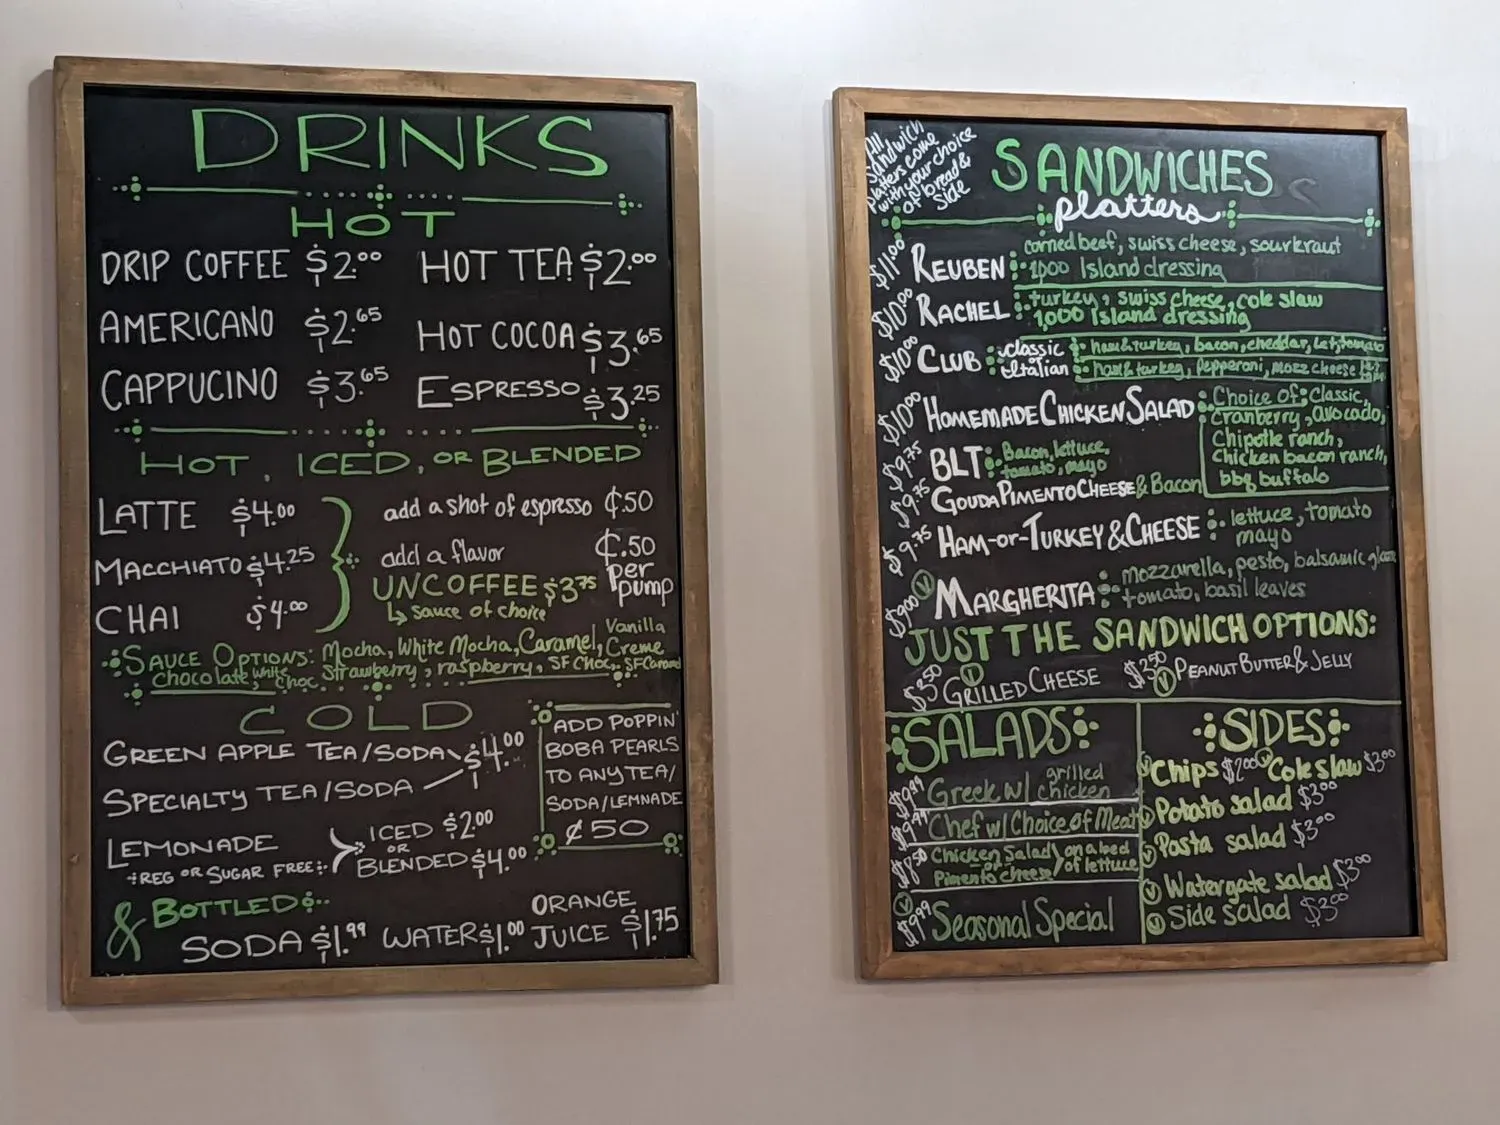 DRINKS
HOT
DRIP COFFEE $2.00
HOT TEA $2.00
AMERICANO $2.65
HOT COCOA $3.65
CAPPUCINO $3.65
ESPRESSO $3.25
HOT, ICED, OR BLENDED
LATTE $4.00
MACCHIATO $4.25
CHAI $4.00
add a shot of espresso ¢.50
add a flavor ¢.50 per pump
UNCOFFEE $3.75
↳ sauce of choice
SAUCE OPTIONS: Mocha, White Mocha, Caramel, Vanilla Creme
chocolate, white choc, strawberry, raspberry, SF Choc, SF Caramel
COLD
GREEN APPLE TEA/SODA $4.00
SPECIALTY TEA/SODA
LEMONADE
REG OR SUGAR FREE
ICED $2.00
OR
BLENDED $4.00
ADD POPPIN'
BOBA PEARLS
TO ANY TEA/
SODA/LEMNADE
¢50
& BOTTLED
SODA $1.99 WATER $1.00 ORANGE JUICE $1.75
All
Sandwich
platters come
with your choice
of bread &
side
SANDWICHES
platters
$11.00 REUBEN corned beef, swiss cheese, sourkraut
1,000 Island dressing
$10.00 RACHEL turkey, swiss cheese, cole slaw
1,000 Island dressing
$10.00 CLUB classic ham & turkey, bacon, cheddar, let, tomato
italian ham & turkey, pepperoni, mozz cheese
$10.00 HOMEMADE CHICKEN SALAD
Choice of: Classic,
cranberry, avocado,
Chipotle ranch,
Chicken bacon ranch,
bbq buffalo
$9.75 BLT Bacon, lettuce,
tomato, mayo
$9.75 GOUDA PIMENTO CHEESE & Bacon
$9.75 HAM-OR-TURKEY & CHEESE lettuce, tomato
mayo
$9.00 V MARGHERITA mozzarella, pesto, balsamic glaze
tomato, basil leaves
JUST THE SANDWICH OPTIONS:
$3.50 V GRILLED CHEESE $2.50 V PEANUT BUTTER & JELLY
SALADS
$9.99 Greek w/ grilled chicken
$9.99 Chef w/ Choice of Meat
$8.50 Chicken Salad
Pimento cheese
on a bed
of lettuce
V $9.99 Seasonal Special
SIDES
V Chips $2.00 V Cole slaw $3.00
V Potato salad $3.00
V Pasta salad $3.00
V Watergate salad $3.00
V Side salad $3.00